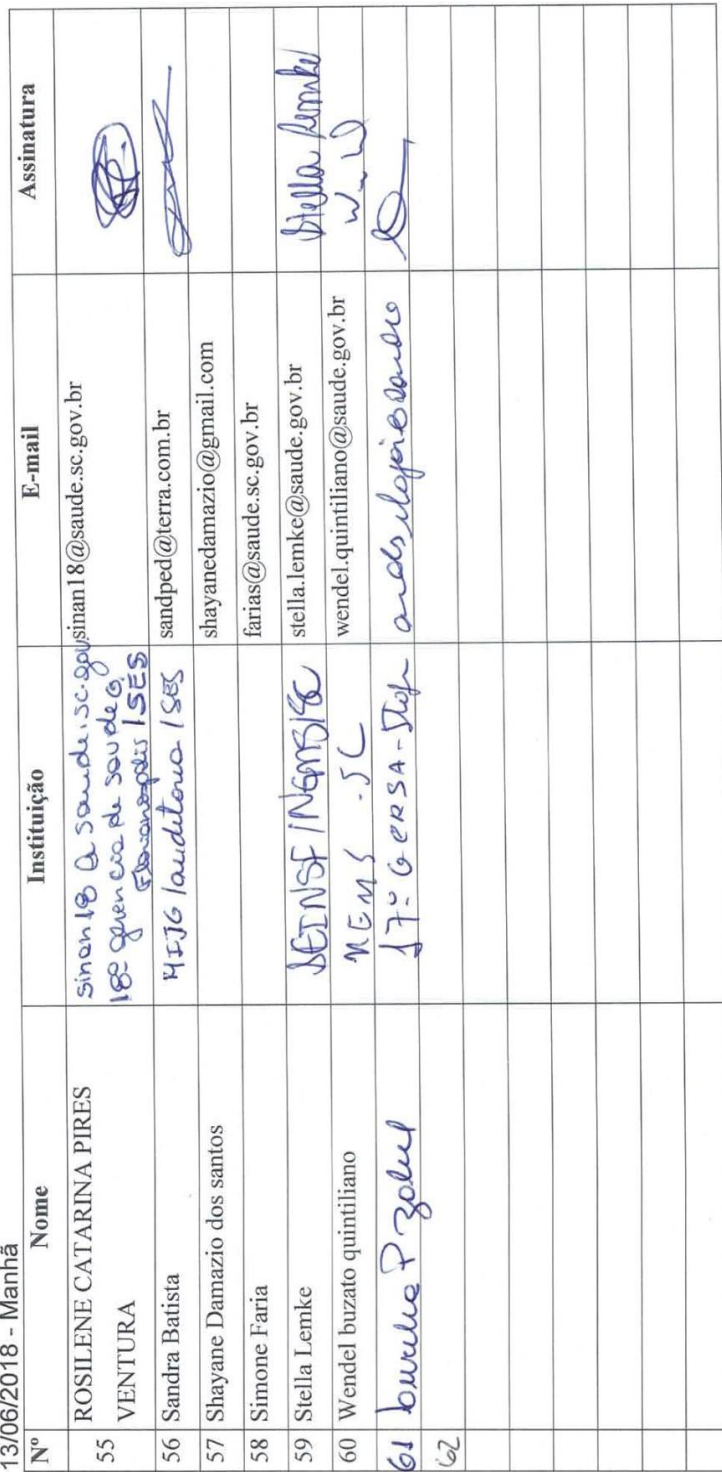 13/06/2018 - Manhã
Nº Nome Instituição E-mail Assinatura
55 ROSILENE CATARINA PIRES VENTURA sinan18@saude.sc.gov. sinan18@saude.sc.gov.br
18ª gerencia de saude G.
Florianopolis / SES
56 Sandra Batista MIJG /auditoria / SES sandped@terra.com.br
57 Shayane Damazio dos santos shayanedamazio@gmail.com
58 Simone Faria farias@saude.sc.gov.br
59 Stella Lemke SEINSF/NEMS/SC stella.lemke@saude.gov.br Stella Lemke
60 Wendel buzato quintiliano NEMS -SC wendel.quintiliano@saude.gov.br
61 P 17ª GERSA-
62